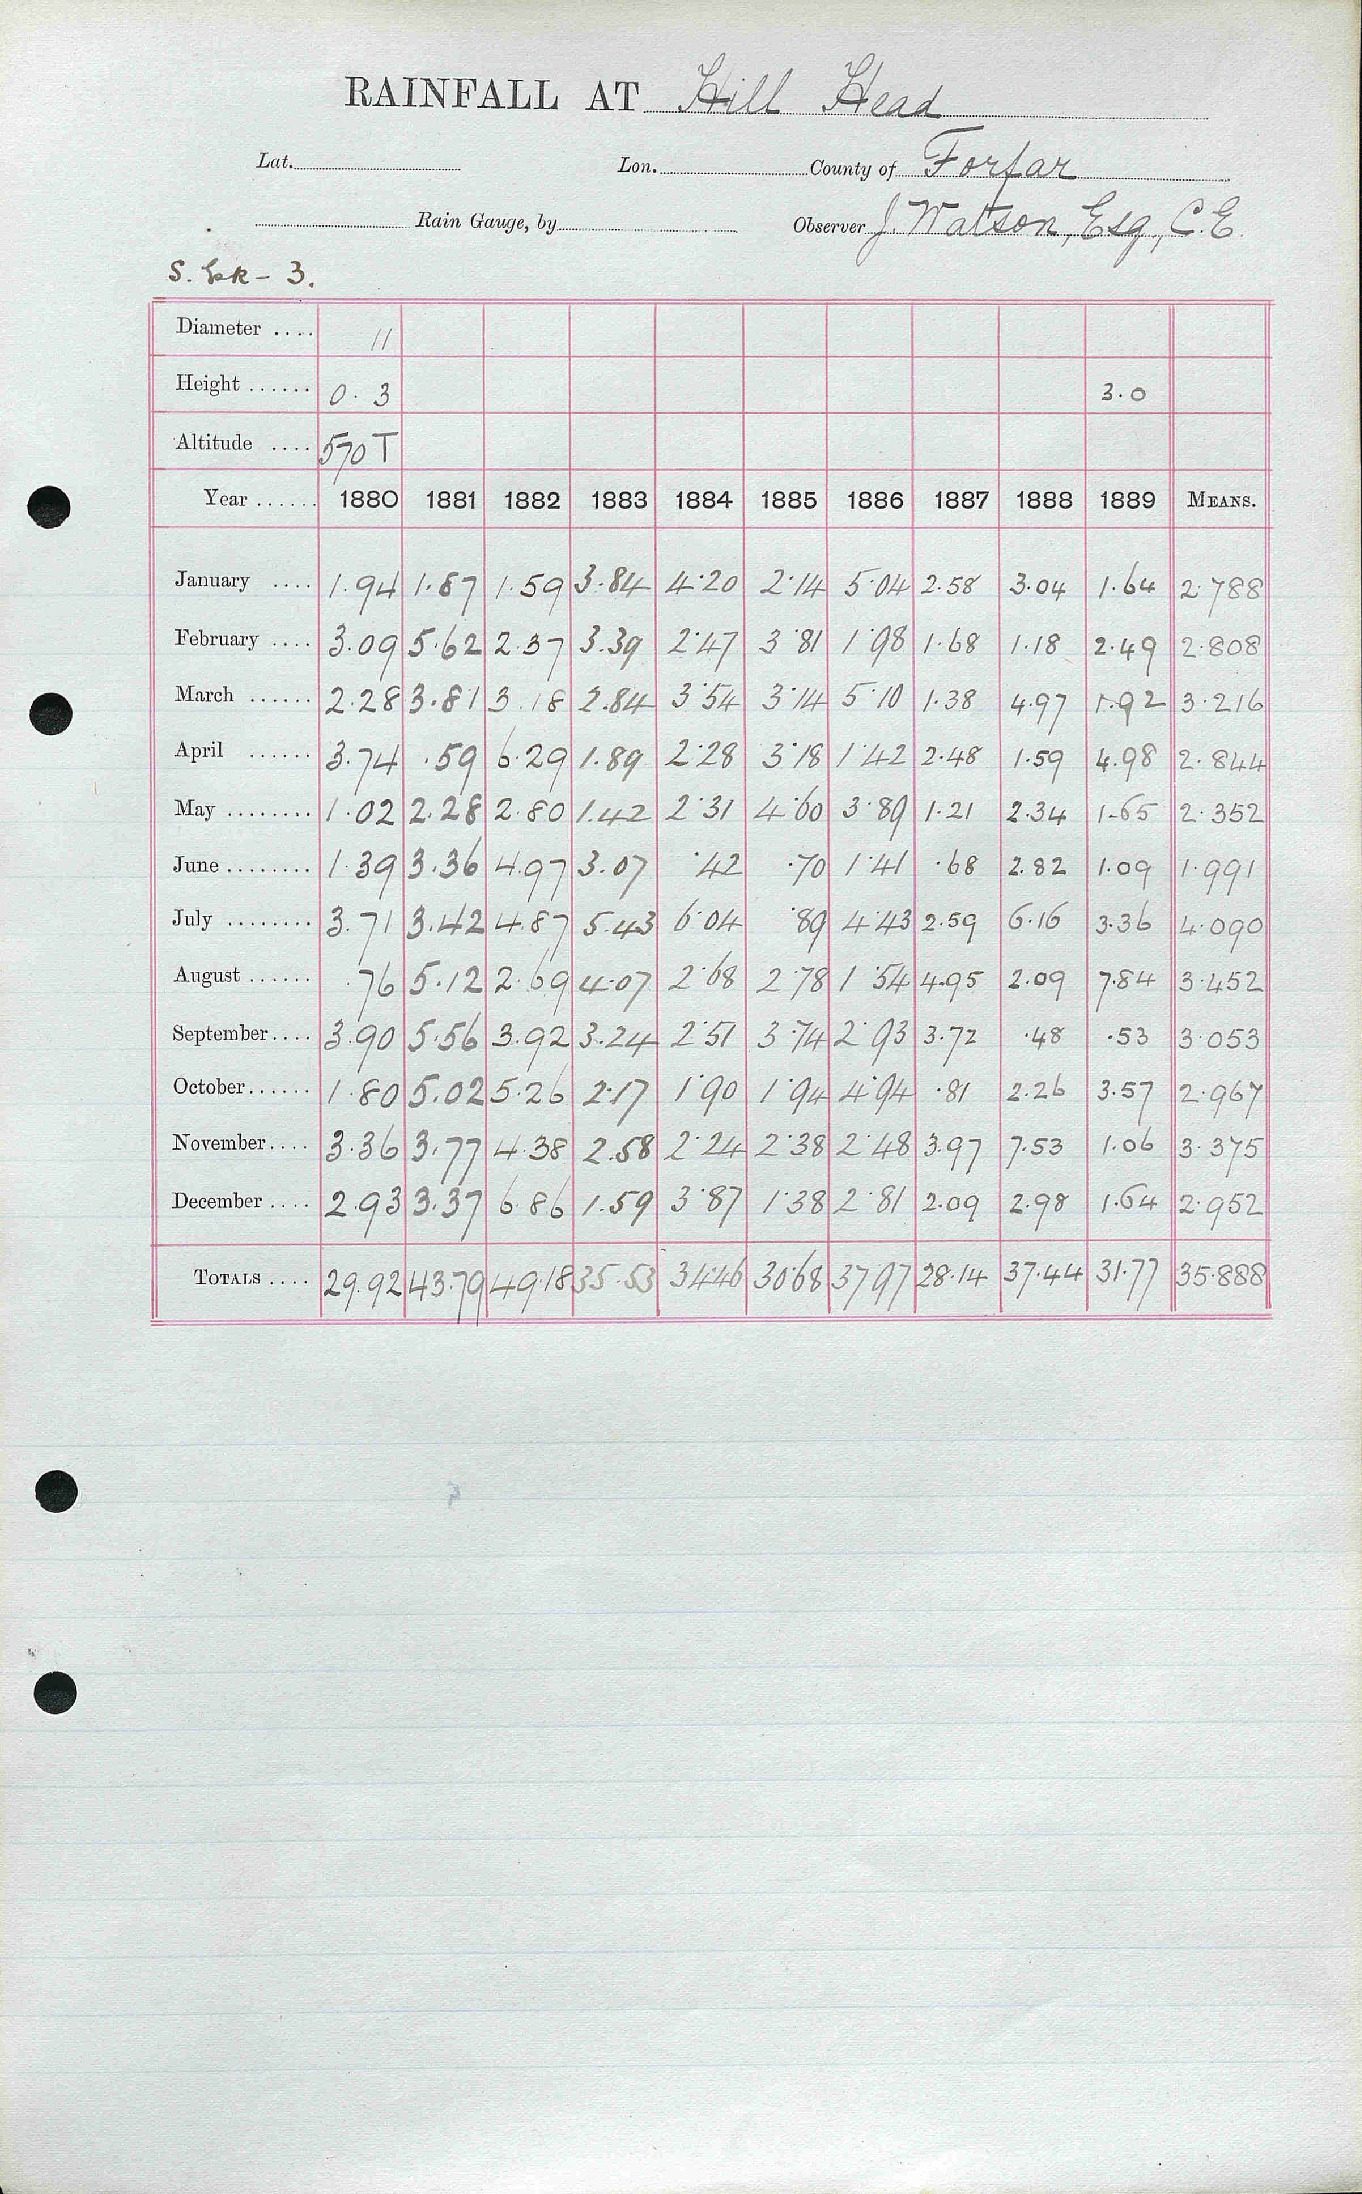 RAINFALL AT Hill Head
Lat. Lon. County of Forfar
Rain Gauge, by Observer J. Watson, Esq., C.E.
S. - 3.
Diameter .... 11
Height ...... 0.3 3.0
Altitude .... 570 T
Year ...... 1880 1881 1882 1883 1884 1885 1886 1887 1888 1889 MEANS.
January .... 1.94 1.87 1.59 3.84 4.20 2.14 5.04 2.58 3.04 1.64 2.788
February .... 3.09 5.62 2.37 3.39 2.47 3.81 1.98 1.68 1.18 2.49 2.808
March ...... 2.28 3.81 3.18 2.84 3.54 3.14 5.10 1.38 4.97 1.92 3.216
April ...... 3.74 .59 6.29 1.89 2.28 3.18 1.42 2.48 1.59 4.98 2.844
May ........ 1.02 2.28 2.80 1.42 2.31 4.60 3.89 1.21 2.34 1.65 2.352
June ........ 1.39 3.36 4.97 3.07 .42 .70 1.41 .68 2.82 1.09 1.991
July ........ 3.71 3.42 4.87 5.43 6.04 .89 4.43 2.59 6.16 3.36 4.090
August ...... .76 5.12 2.69 4.07 2.68 2.78 1.54 4.95 2.09 7.84 3.452
September .... 3.90 5.56 3.92 3.24 2.51 3.74 2.93 3.72 .48 .53 3.053
October ...... 1.80 5.02 5.26 2.17 1.90 1.94 4.94 .81 2.26 3.57 2.967
November .... 3.36 3.77 4.38 2.58 2.24 2.38 2.48 3.97 7.53 1.06 3.375
December .... 2.93 3.37 6.86 1.59 3.87 1.38 2.81 2.09 2.98 1.64 2.952
TOTALS .... 29.92 43.79 49.18 35.53 34.46 30.68 37.97 28.14 37.44 31.77 35.888